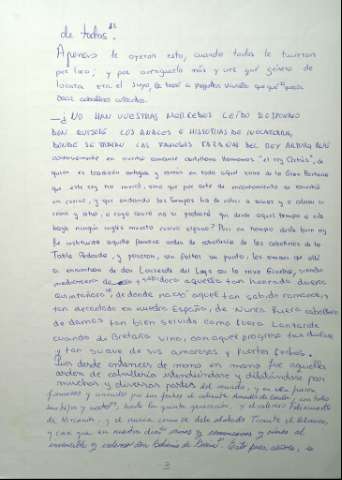 de todos."
Apenas le oyeron esto, cuando todos le tuvieron
por loco; y por averiguarlo más y ver qué género de
locura era el suyo, le tornó a preguntar Vivaldo que qué quería
decir caballeros andantes.
—¿NO HAN VUESTRAS MERCEDES LEÍDO RESPONDIÓ
DON QUIJOTE LOS ANALES E HISTORIAS DE INGLATERRA,
DONDE SE TRATAN LAS FAMOSAS FAZAÑAS DEL REY ARTURO, QUE
continuamente en nuestro romance castellano llamamos "el rey Artús", de
quien es tradición antigua y común en todo aquel reino de la Gran Bretaña
que este rey no murió, sino que por arte de encantamento se convirtió
en cuervo, y que andando los tiempos ha de volver a reinar y a cobrar su
reino y cetro, a cuya causa no se probará que desde aquel tiempo a éste
haya ningún inglés muerto cuervo alguno? Pues en tiempo deste buen rey
fue instituida aquella famosa orden de caballería de los caballeros de la
Tabla Redonda, y pasaron, sin faltar un punto, los amores que allí
se cuentan de don Lanzarote del Lago con la reina Ginebra, siendo
medianera dellos y sabidora aquella tan honrada dueña
Quintañona, de donde nació aquel tan sabido romance,
tan decantado en nuestra España, de Nunca fuera caballero
de damas tan bien servido como fuera Lanzarote
cuando de Bretaña vino, con aquel progreso tan dulce
y tan suave de sus amorosos y fuertes fechos.
Pues desde entonces de mano en mano fue aquella
orden de caballería extendiéndose y dilatándose por
muchas y diversas partes del mundo, y en ella fueron
famosos y conocidos por sus fechos el valiente Amadís de Gaula, con todos
sus hijos y nietos, hasta la quinta generación, y el valeroso Felixmarte
de Hircania, y el nunca como se debe alabado Tirante el Blanco,
y casi que en nuestros días vimos y comunicamos y oímos al
invencible y valeroso don Belianís de Grecia. Esto pues, señores,
3